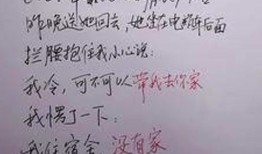 昨晚送她回去，她坐在电动车后面
拦腰抱住我小心说：
我冷，可不可以带我去你家
我愣了一下：
我住宿舍 没有家